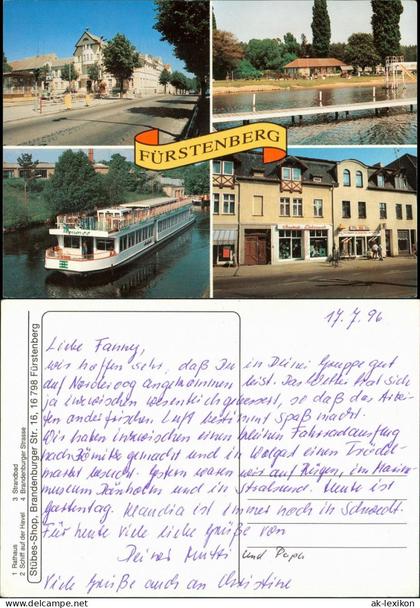 FÜRSTENBERG
17.7.96
Liebe Fanny,
wir hoffen sehr, daß Du in Deiner Gruppe gut
auf Norderoog angekommen bist. Das Wetter hat sich
ja inzwischen wesentlich gebessert, so daß das Arbei-
ten an der frischen Luft bestimmt Spaß macht.
Wir haben inzwischen einen kleinen Fahrradausflug
nach Dömitz gemacht und in Wolgast einen Trödel-
markt besucht. Gestern waren wir auf Rügen, im Marine-
museum Dänholm und in Stralsund. Heute ist
Gartentag. Klaudia ist immer noch in Schwedt.
Für heute viele liebe Grüße von
Deiner Mutti und Papa
Viele Grüße auch an Christine
1 Rathaus 3 Strandbad
2 Schiff auf der Havel 4 Brandenburger Strasse
Stübes-Shop, Brandenburger Str. 16, 16 798 Fürstenberg
© ak-lexikon.de